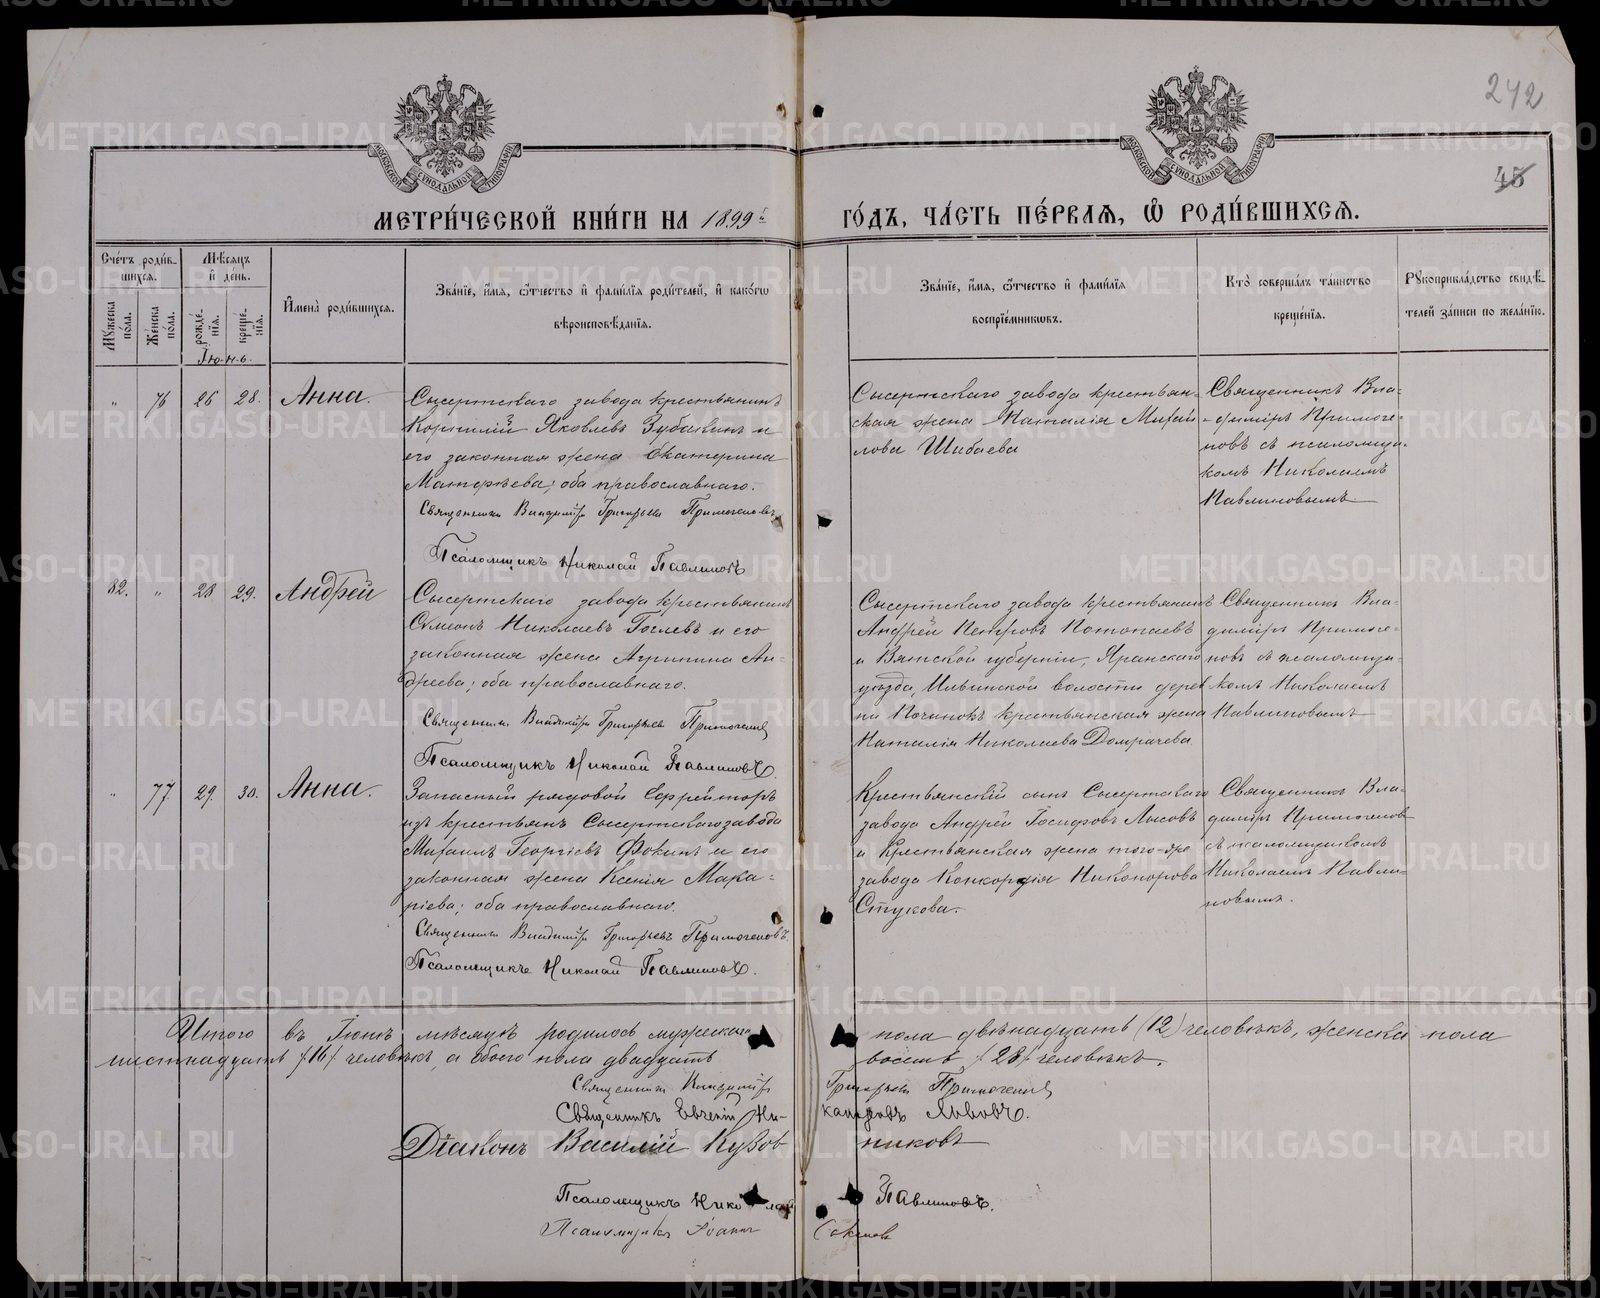 242
45
МОСКОВСКОЙ СѴНОДАЛЬНОЙ ТИПОГРАФІИ
МОСКОВСКОЙ СѴНОДАЛЬНОЙ ТИПОГРАФІИ
МЕТРИ́ЧЕСКОЙ КНИ́ГИ НА 1899й ГО́ДЪ, ЧА́СТЬ ПЕ́РВАЯ, Ѡ РОДИ́ВШИХСЯ.
Сче́тъ роди́в-
шихся.
Мѣ́сяцъ
и де́нь.
Мꙋ́жеска
по́ла.
Же́нска
по́ла.
рожде́-
нїя.
креще́-
нїя.
Іюнь.
Имена̀ роди́вшихся.
Зва́нїе, и́мя, ѻ҆́тчество и фами́лїя роди́телей, и како́гѡ
вѣроисповѣ́данїя.
Зва́нїе, и́мя, ѻ҆́тчество и фами́лїя
воспрїе́мникѡвъ.
Кто̀ соверша́лъ та́инство
креще́нїя.
Рꙋкоприкла́дство свидѣ́-
телей за́писи по жела́нїю.
" 76 26 28. Анна.
Сысертскаго завода крестьянинъ
Корнилій Яковлевъ Зубакинъ и
его законная жена Екатерина
Матѳѣева; оба православнаго.
Священникъ Владиміръ Григорьевъ Примогеновъ
Псаломщикъ Николай Павлиновъ
Сысертскаго завода крестьян-
ская жена Наталія Михай
лова Шибаева
Священникъ Вла-
диміръ Примоге-
новъ съ псаломщи-
комъ Николаемъ
Павлиновымъ
82. " 28 29. Андрей
Сысертскаго завода крестьянинъ
Сѵмеонъ Николаевъ Гоглевъ и его
законная жена Агрипина Ан-
дреева; оба православнаго.
Священникъ Владиміръ Григорьевъ Примогеновъ
Псаломщикъ Николай Павлиновъ.
Сысертскаго завода крестьянинъ
Андрей Петровъ Потопаевъ
и Вятской губерніи, Яранскаго
уѣзда, Ильинской волости дерев
ни Починокъ крестьянская жена
Наталія Николаева Домрачева
Священникъ Вла-
диміръ Примоге-
новъ съ псаломщи-
комъ Николаемъ
Павлиновымъ
" 77 29. 30. Анна.
Запасный рядовой Ефрейторъ
изъ крестьянъ Сысертскаго завода
Михаилъ Георгіевъ Фокинъ и его
законная жена Ксенія Мака-
ріева; оба православнаго.
Священникъ Владиміръ Григорьевъ Примогеновъ.
Псаломщикъ Николай Павлиновъ.
Крестьянскій сынъ Сысертскаго
завода Андрей Іосифовъ Лысовъ
и Крестьянская жена того-же
завода Конкордія Никонорова
Стукова.
Священникъ Вла-
диміръ Примогенов
съ псаломщикомъ
Николаемъ Павли-
новымъ.
Итого въ Іюнѣ мѣсяцѣ родилось мужскаго пола двѣнадцать (12) человѣкъ, женска пола
шестнадцать (16) человѣкъ, а обоего пола двадцать восемь (28) человѣкъ.
Священникъ Владиміръ Григорьевъ Примогеновъ
Священникъ Евгеній Ни- каноровъ Львовъ.
Діаконъ Василій Кузов- никовъ
Псаломщикъ Николай Павлиновъ.
Псаломщикъ Іоаннъ
METRIKI.GASO-URAL.RU